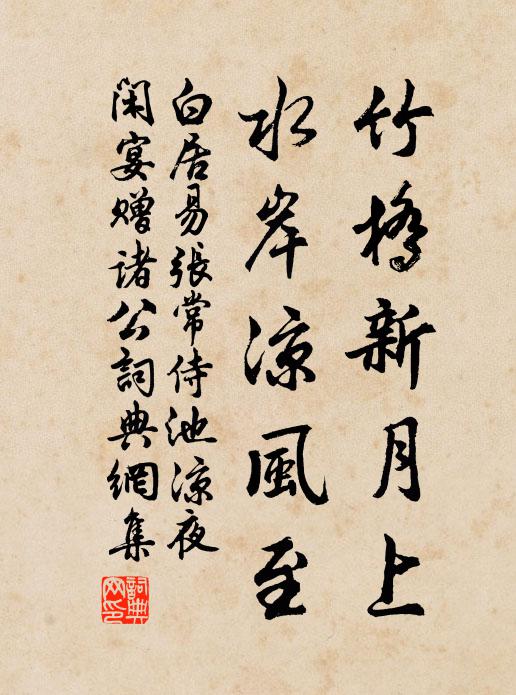 竹橋新月上
水岸凉風至
白居易張常侍池凉夜
閑宴贈諸公詞典網集
詞典網印